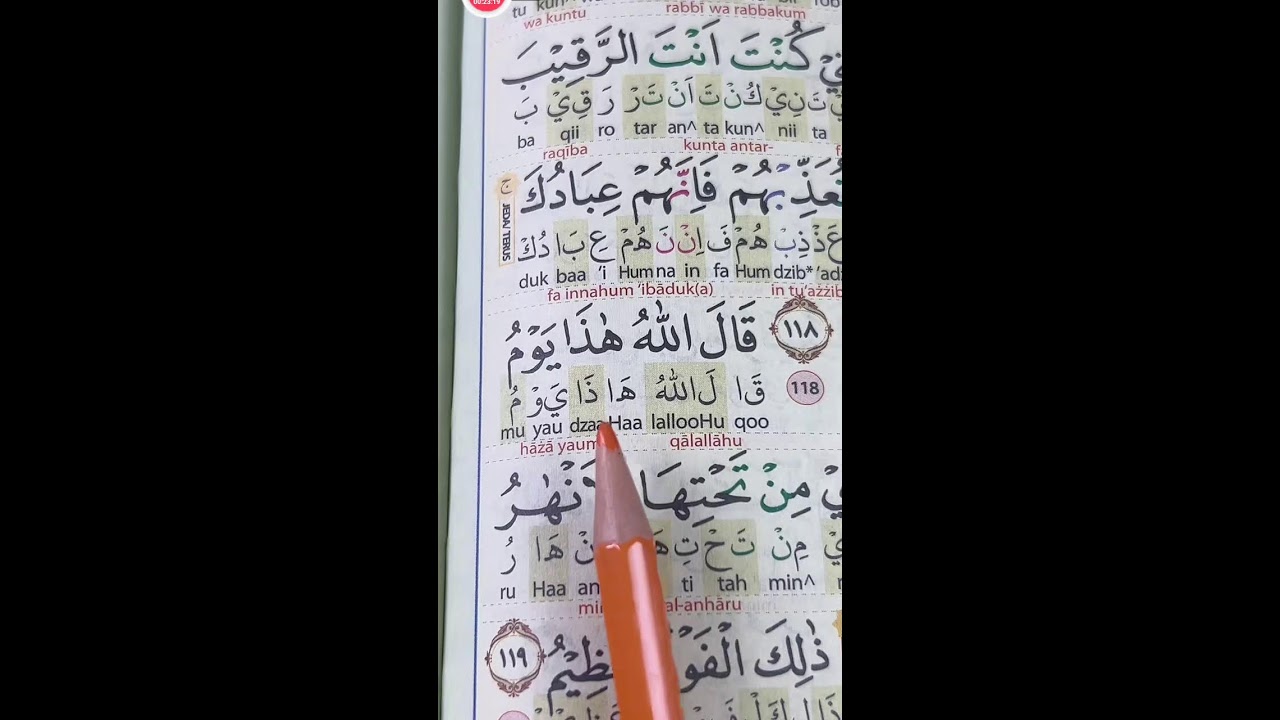 00:23:19
tu kun^
wa kuntu rabbī wa rabbakum
كُنْتَ اَنْتَ الرَّقِيْبَ
تَ نِيْ كُنْ تَ اَنْ تَرْ رَ قِيْ بَ
ba qii ro tar an^ ta kun^ nii ta
raqība kunta antar-
فَاِنَّهُمْ عِبَادُكَ
ج JEDA/ TERUS
عَذْ ذِبْ هُمْ فَ اِنْ نَ هُمْ عِ بَا دُكْ
duk baa ‘i Hum na in fa Hum dzib* ‘adz
fa innahum ‘ibāduk(a) in tu‘ażżib
١١٨ قَالَ اللّٰهُ هٰذَا يَوْمُ
118 قَا لَ اللّٰهُ هَا ذَا يَوْ مُ
mu yau dzaa Haa lallooHu qoo
hāżā yaum qālallāhu
مِنْ تَحْتِهَا
مِنْ تَحْ تِ هَا رُ
ru Haa an ti tah min^
al-anhāru
ذٰلِكَ ١١٩